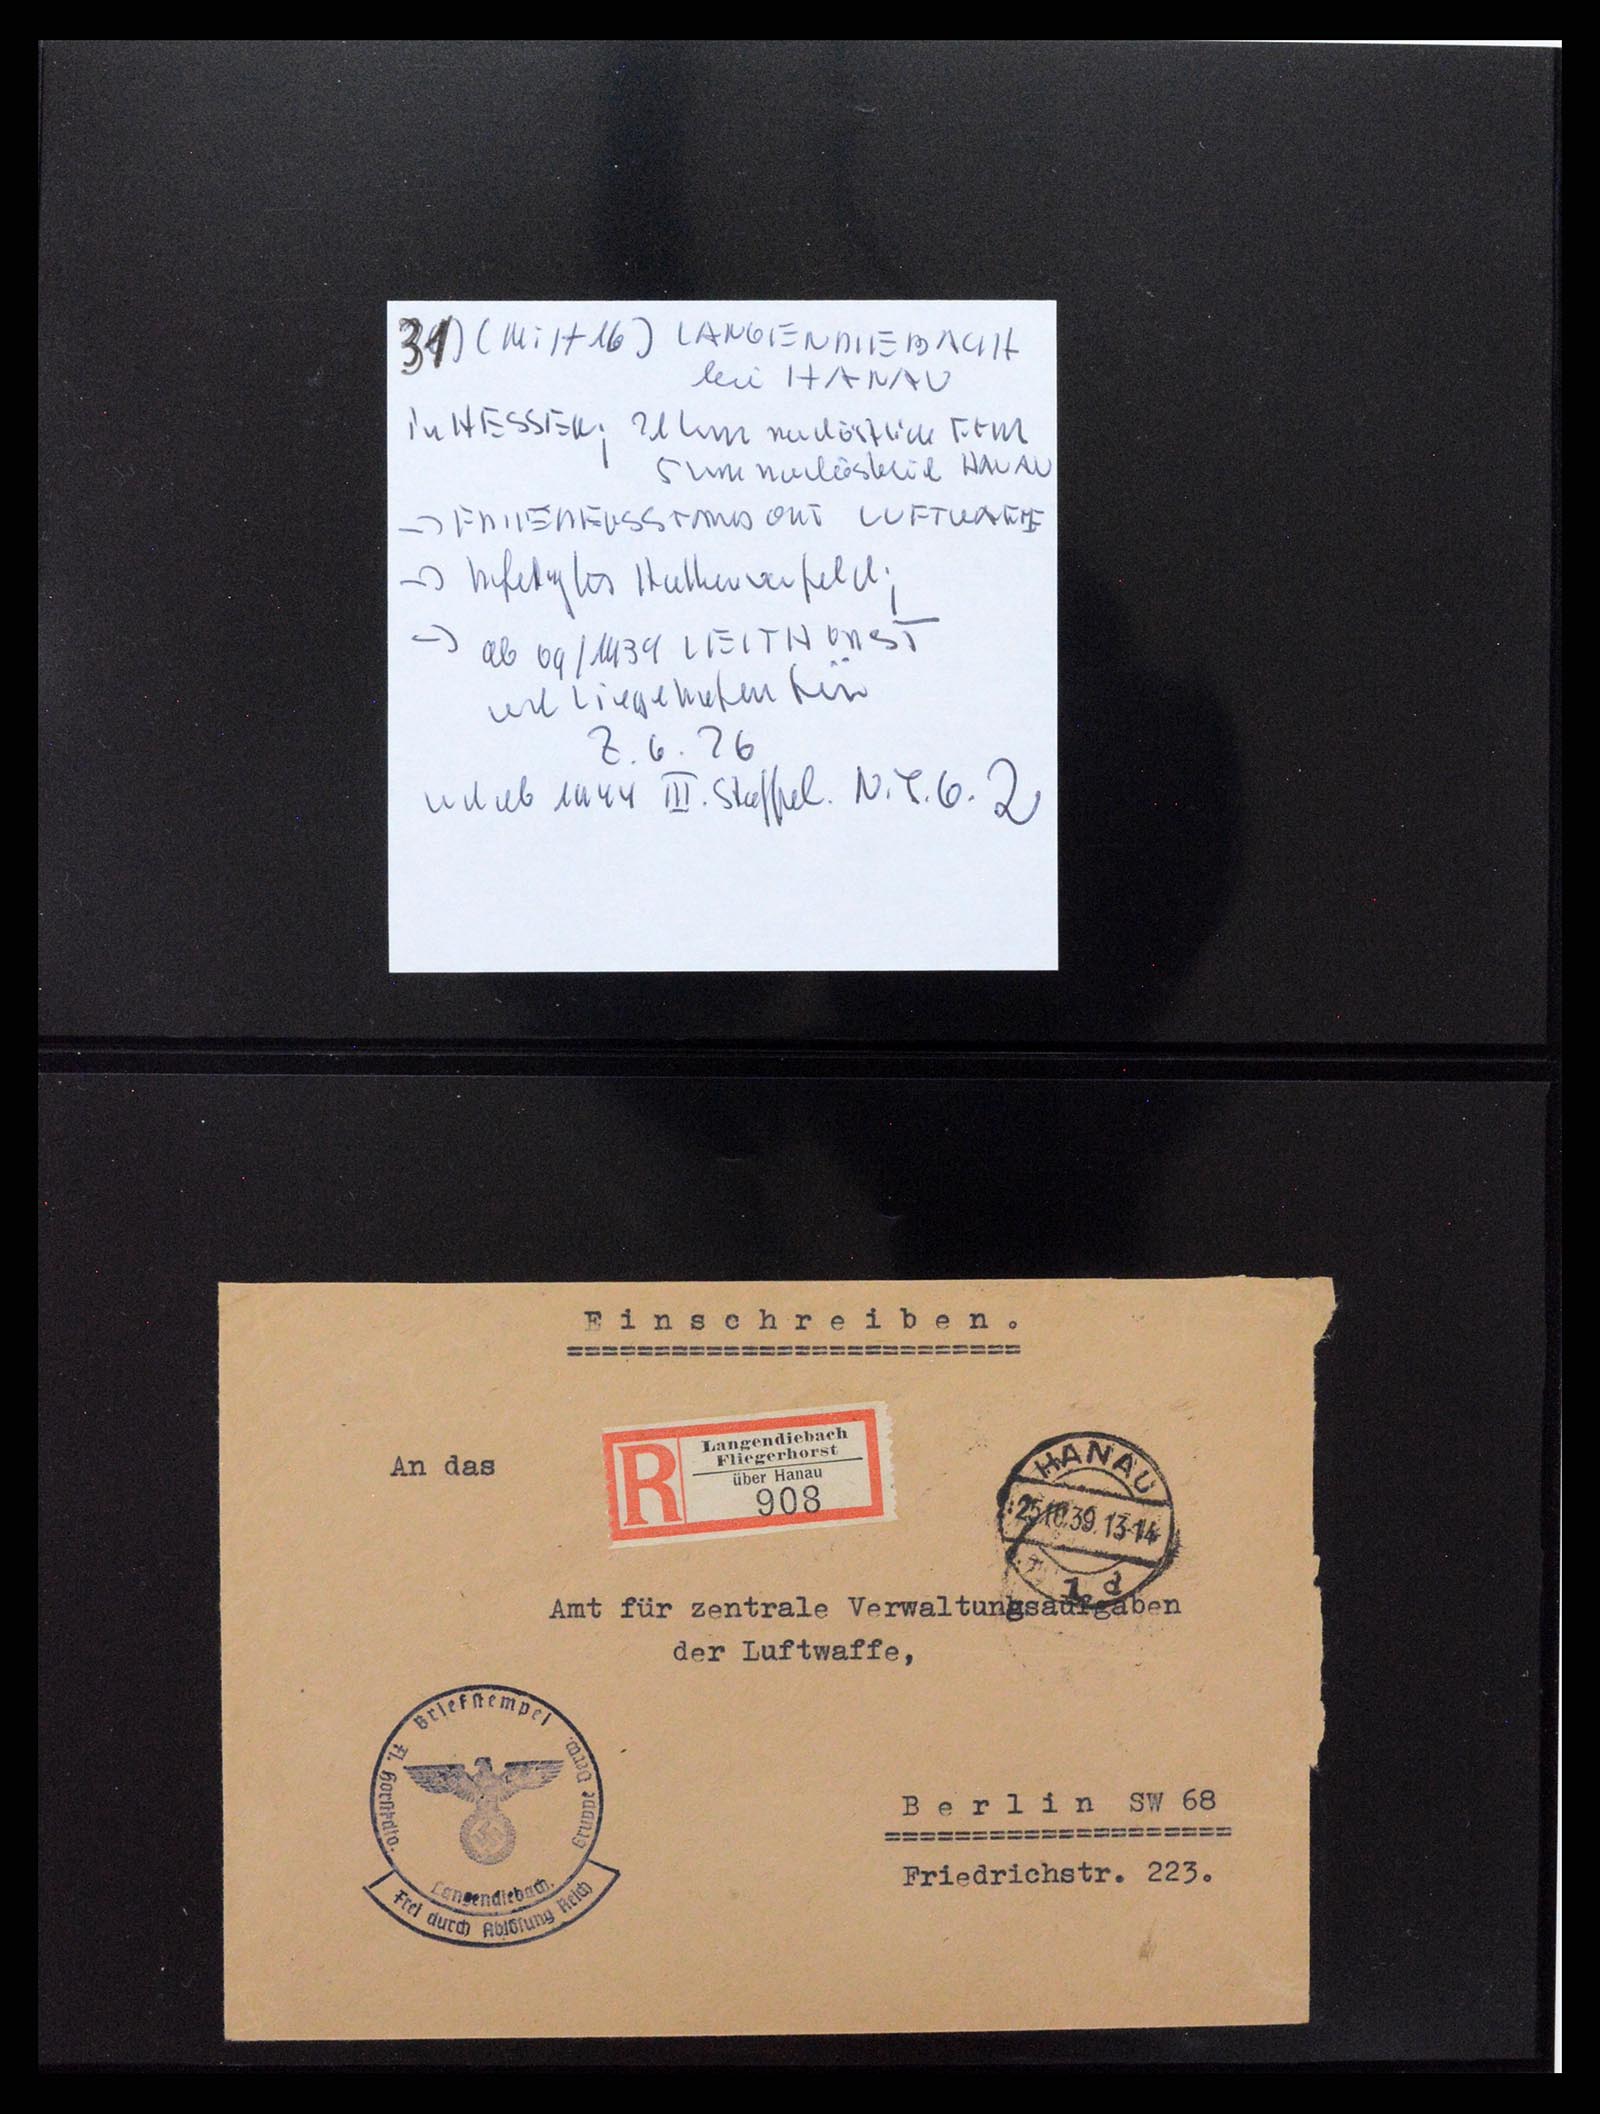 31) (Milt 16) LANGENDIEBACH
bei HANAU
in HESSEN; 21 km nordöstlich FFM
5 km nordöstlich HANAU
→ FRIEDENSSTANDORT LUFTWAFFE
→ befestigtes
→ ab 09/1939 LEITHORST
und Liegehafen für
Z.G. 26
und ab 1944 III. Staffel. N.J.G. 2
Einschreiben.
An das
R
Langendiebach
Fliegerhorst
über Hanau
908
HANAU
25.10.39. 13-14
1 d
Amt für zentrale Verwaltungsaufgaben
der Luftwaffe,
Briefstempel
Fl. Horstkdtr. Gruppe Verw.
Langendiebach.
Frei durch Ablösung Reich
Berlin SW 68
Friedrichstr. 223.